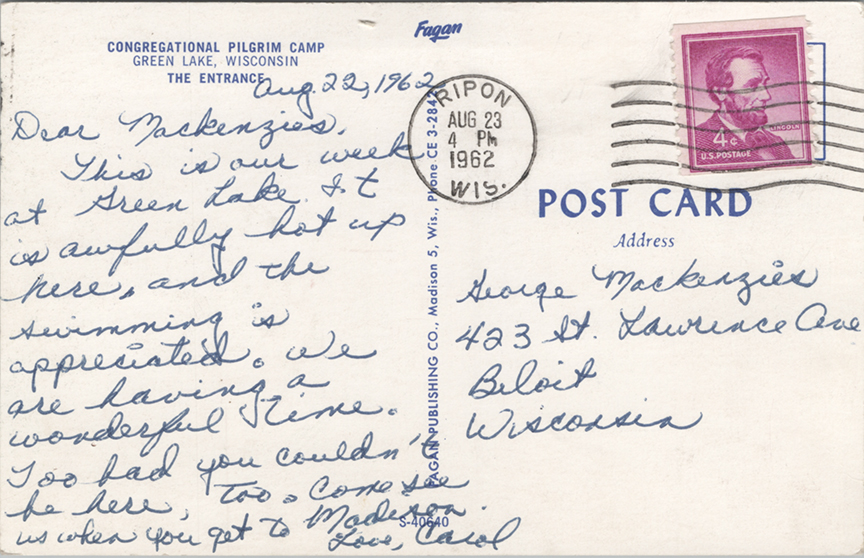 Fagan
CONGREGATIONAL PILGRIM CAMP
GREEN LAKE, WISCONSIN
THE ENTRANCE
Aug. 22, 1962
Dear Mackenzies,
This is our week
at Green Lake. It
is awfully hot up
here, and the
swimming is
appreciated. We
are having a
wonderful time.
Too bad you couldn't
be here, too. Come see
us when you get to Madison.
Love, Carol
S-40640
FAGAN PUBLISHING CO., Madison 5, Wis., Phone CE 3-2842
RIPON
AUG 23
4 PM
1962
WIS.
LINCOLN
4¢
U.S. POSTAGE
POST CARD
Address
George Mackenzies
423 St. Lawrence Ave
Beloit
Wisconsin